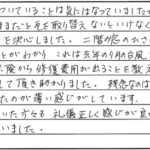 ついていることは気にはなっていましたが
まだと瓦を取り替えないといけなく
を決心しました。二階の窓のひさ
とがわかり、これは去年の9月の台風
保険から修復費用が出ることを教え
して頂き助かりました。残念なのは
たのが薄い感じがしています。
いた方々も礼儀正しく感じが良
いました。